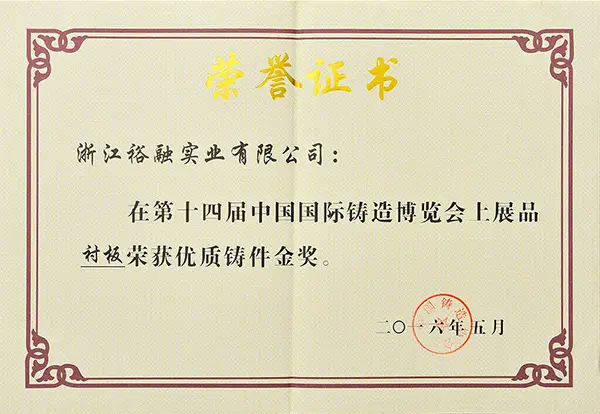 荣誉证书
浙江裕融实业有限公司：
在第十四届中国国际铸造博览会上展品
衬板荣获优质铸件金奖。
二〇一六年五月